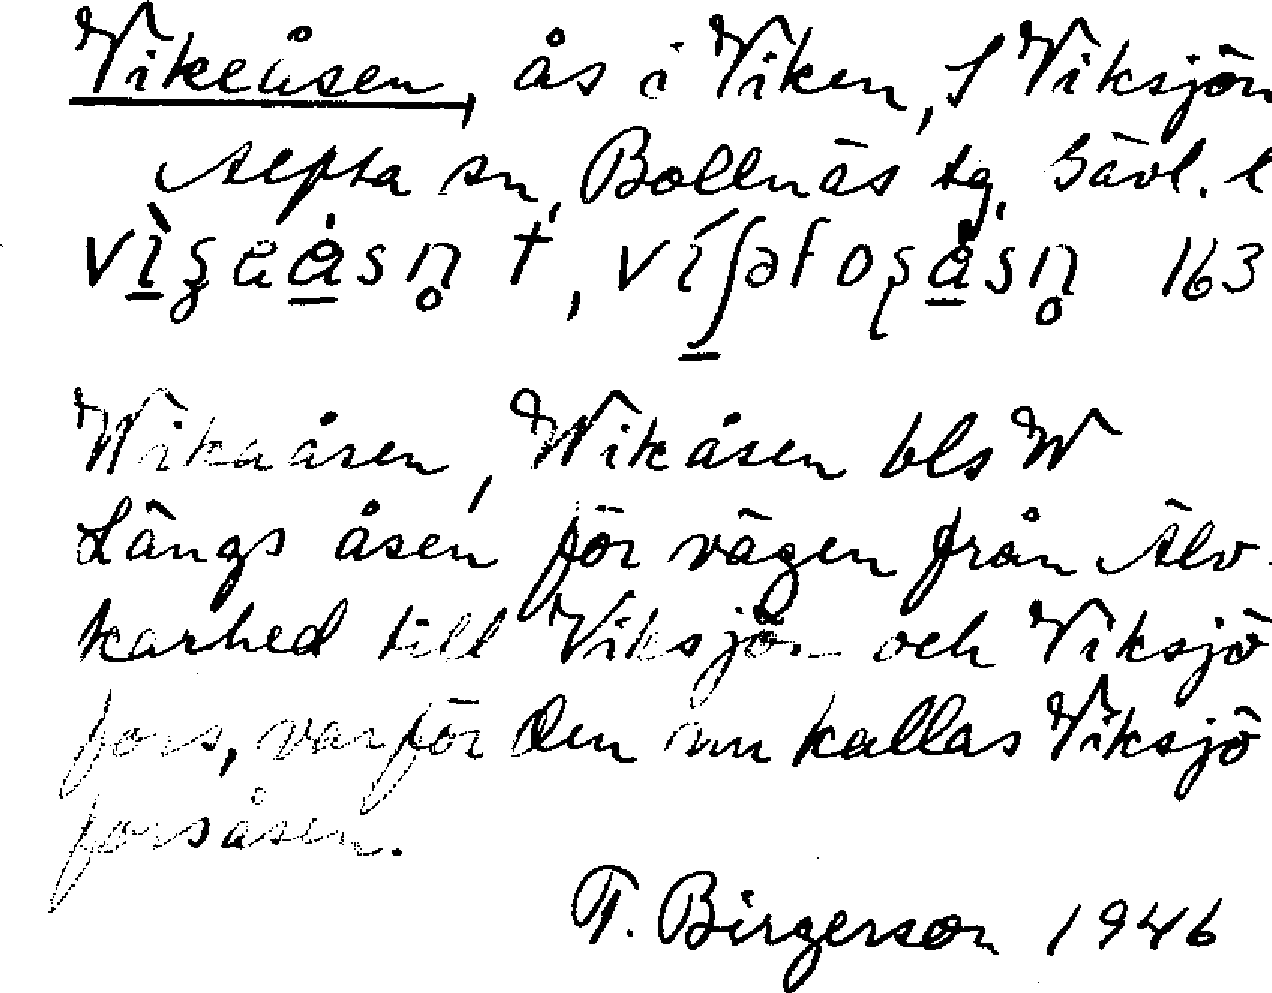 Vikeåsen, ås i Viken, S Viksjön
Alfta sn, Bollnäs tg, Gävl. l
163
Wikaåsen, Wikåsen bls W
Längs åsen för vägen från Älv-
karhed till Viksjön och Viksjö
fors, varför den nu kallas Viksjö
forsåsen.
T. Birgerson 1946